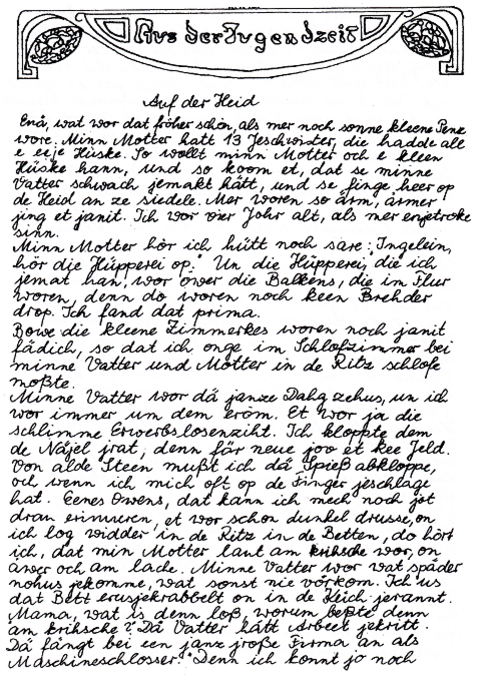 Aus der Jugendzeit
Auf der Heid
Enä, wat wor dat fröher schön, als mer noch sonne kleene Penz
wore. Minn Motter hatt 13 Jeschwister, die hadde all
e eeje Hüske. So wollt minn Motter och e kleen
Hüske hann, und so koom et, dat se minne
Vatter schwach jemakt hätt, und se finge heer op
de Heid an ze siedele. Mer woren so arm, ärmer
jing et janit. Ich wor vier Johr alt, als mer enjetroke
sinn.
Minn Motter hör ich hütt noch sare: "Ingelein,
hör die Hüpperei op." Un die Hüpperei, die ich
jemat han, wor öwer die Balkens, die im Flur
woren, denn do woren noch keen Brehder
drop. Ich fand dat prima.
Bowe die kleene Zimmerkes woren noch janit
fädich, so dat ich onge im Schlofzimmer bei
minne Vatter und Motter in de Ritz schlofe
moßte.
Minne Vatter wor dä janze Dahg zehus, un ich
wor immer um dem eröm. Et wor ja die
schlimme Erwerbslosenziht. Ich kloppte dem
de Näjel jrat, denn för neue joo et kee Jeld.
Von alde Steen mußt ich dä Spieß abkloppe,
och wenn ich mich oft op de Finger jeschlage
hat. Eenes Owens, dat kann ich mech noch jot
dran erinneren, et wor schon dunkel drusse, on
ich log widder in de Ritz in de Betten, do hört
ich, dat min Motter laut am krihsche wor, on
äwer och am lache. Minne Vatter wor wat späder
nohus jekomme, wat sonst nie vörkom. Ich us
dat Bett erusjekrabbelt on in de Käch jerannt.
Mama, wat is denn loß, worum beßte denn
am krihsche? "Dä Vatter hätt Arbeet jekritt.
Dä fängt bei een janz jroße Firma an als
Maschineschlosser." Denn ich konnt jo noch